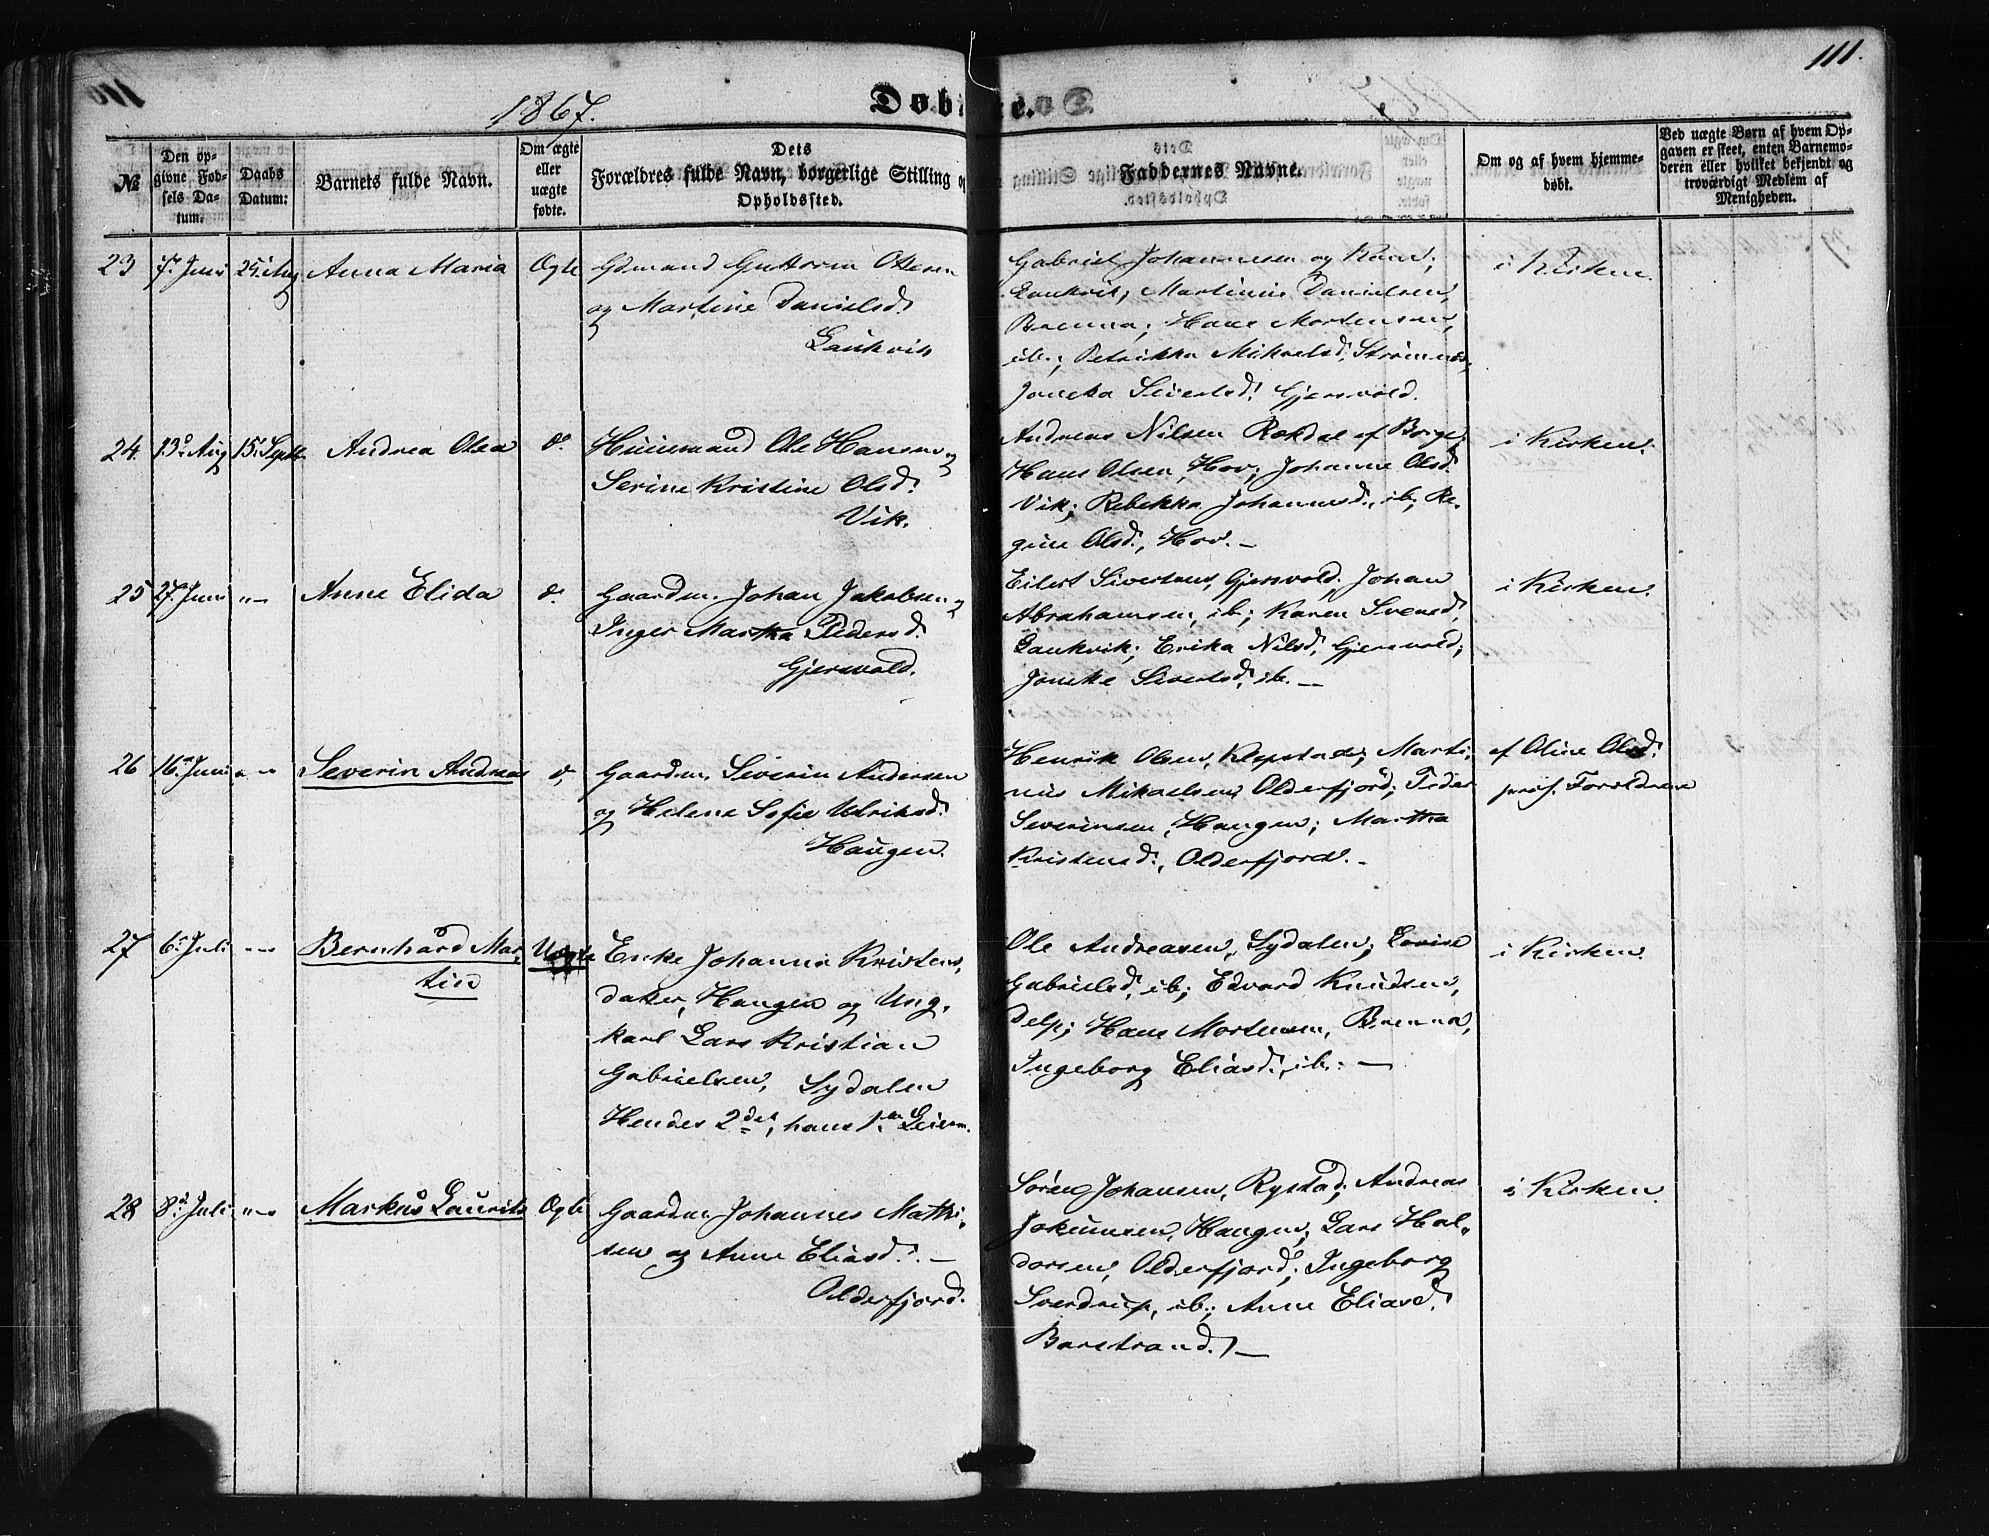 111.
1867.
Døbte.
№
Den opgivne Fødsels Datum.
Daabs Datum:
Barnets fulde Navn.
Om ægte eller uægte fødte.
Dets Forældres fulde Navn, borgerlige Stilling og Opholdssted.
Faddernes Navne.
Om og af hvem hjemmedøbt.
Ved uægte Børn af hvem Opgaven er skeet, enten Barnemoderen eller hvilket bekjendt og troværdigt Medlem af Menigheden.
23 7. Juni 25. Aug Anna Maria Ægte
Gdmand Guttorm Ottesen
og Martine Danielsd.
Laukvik
Gabriel Johannesen og Kone,
Laukvik; Martinus Danielsen,
Brenna; Hans Mortensen,
ib.; Petrikka Mikaelsd. Strømnes,
Joneka Sivertsd. Gjersvold.
i Kirken.
24. 13. Aug 15. Septb. Andrea Olea do.
Huusmand Ole Hansen og
Serine Kristine Olsd.
Vik.
Andreas Nilsen Rekdal af Borge;
Hans Olsen, Hov; Johanne Olsd.
Vik; Rebekka Johannesd., ib; Re-
gine Olsd., Hov. —
i Kirken.
25 27. Juni "— Anne Elida do.
Gaardm. Johan Jakobsen og
Inger Martha Pedersd.
Gjersvold.
Eilert Sivertsen, Gjersvold; Johan
Abrahamsen, ib; Karen Svensd.
Laukvik; Erika Nilsd. Gjersvold;
Joneke Sivertsd. ib. —
i Kirken.
26 16. Juni "— Severin Andreas do.
Gaardm. Severin Andersen
og Helene Sofie Ulriksd.
Haugen.
Henrik Olsen, Klepstad; Marti-
nus Mikaelsen, Olderfjord; Peder
Severinsen, Haugen; Martha
Kristensd., Olderfjord. —
af Oline Olsd.
præs. Forældrene
27 6. Juli "— Bernhard Mar-
tin
Uægte
Enke Johanna Kristens-
dater, Haugen og Ung-
karl Lars Kristian
Gabrielsen, Sydalen
Hendes 2det, hans 1ste Leierm.
Ole Andreasen, Sydalen; Lovise
Gabrielsd., ib; Edvard Knudsen,
Delp; Hans Mortensen, Brenna,
Ingeborg Eliasd., ib. —
i Kirken.
28 8. Juli "— Markus Laurits Ægte
Gaardm. Johannes Mathi-
sen og Anne Eliasd. —
Olderfjord.
Søren Johansen, Rystad; Andreas
Jokumsen, Haugen; Lars Hal-
dorsen, Olderfjord; Ingeborg
Sverdrup, ib; Anne Eliasd.
Barstrand. —
i Kirken.